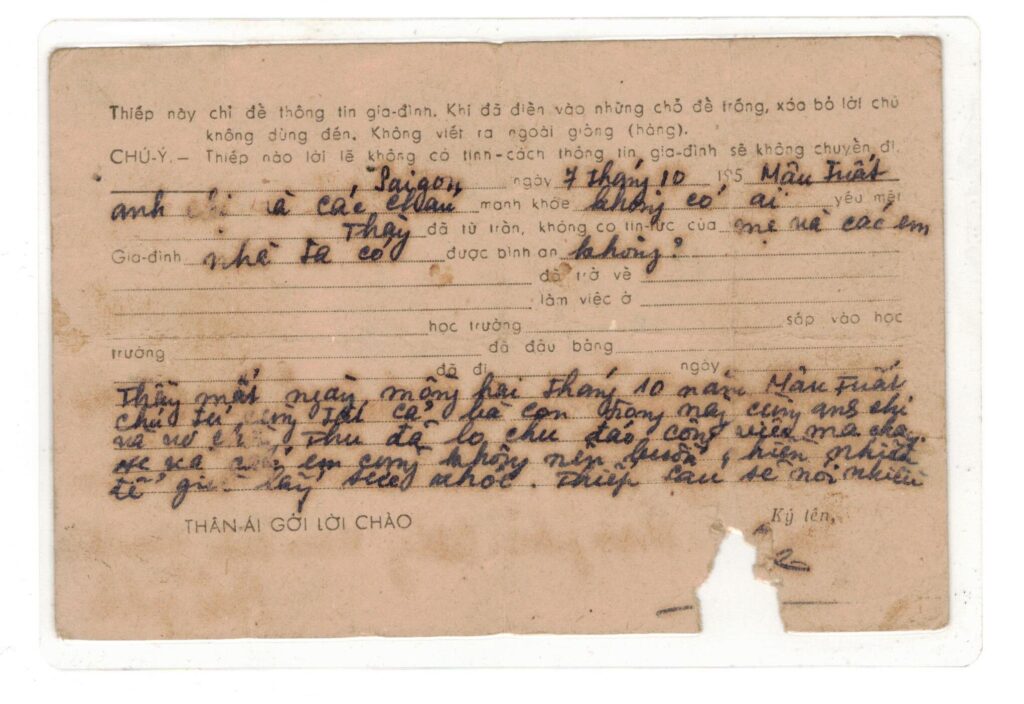 Thiếp này chỉ để thông tin gia-đình. Khi đã điền vào những chỗ để trống, xóa bỏ lời chú
không dùng đến. Không viết ra ngoài giòng (hàng).
CHÚ-Ý. — Thiếp nào lời lẽ không có tính-cách thông tin gia-đình sẽ không chuyển đi.
Saigon ngày 7 tháng 10 195 Mậu Tuất
anh chị và các cháu mạnh khỏe không có ai yếu mệt
Thầy đã từ trần, không có tin-tức của mẹ và các em
Gia-đình nhà ta có được bình an không?
đã trở về
làm việc ở
học trường sắp vào học
trường đã đậu bằng
đã đi ngày
Thầy mất ngày mồng hai tháng 10 năm Mậu Tuất
chú tư cùng tất cả bà con trong này cùng anh chị
và vợ Thu đã lo chu đáo công việc ma chay.
em cũng không nên buồn,
để lấy sức khỏe. Thiếp sau sẽ nói nhiều
THÂN-ÁI GỞI LỜI CHÀO
Ký tên,